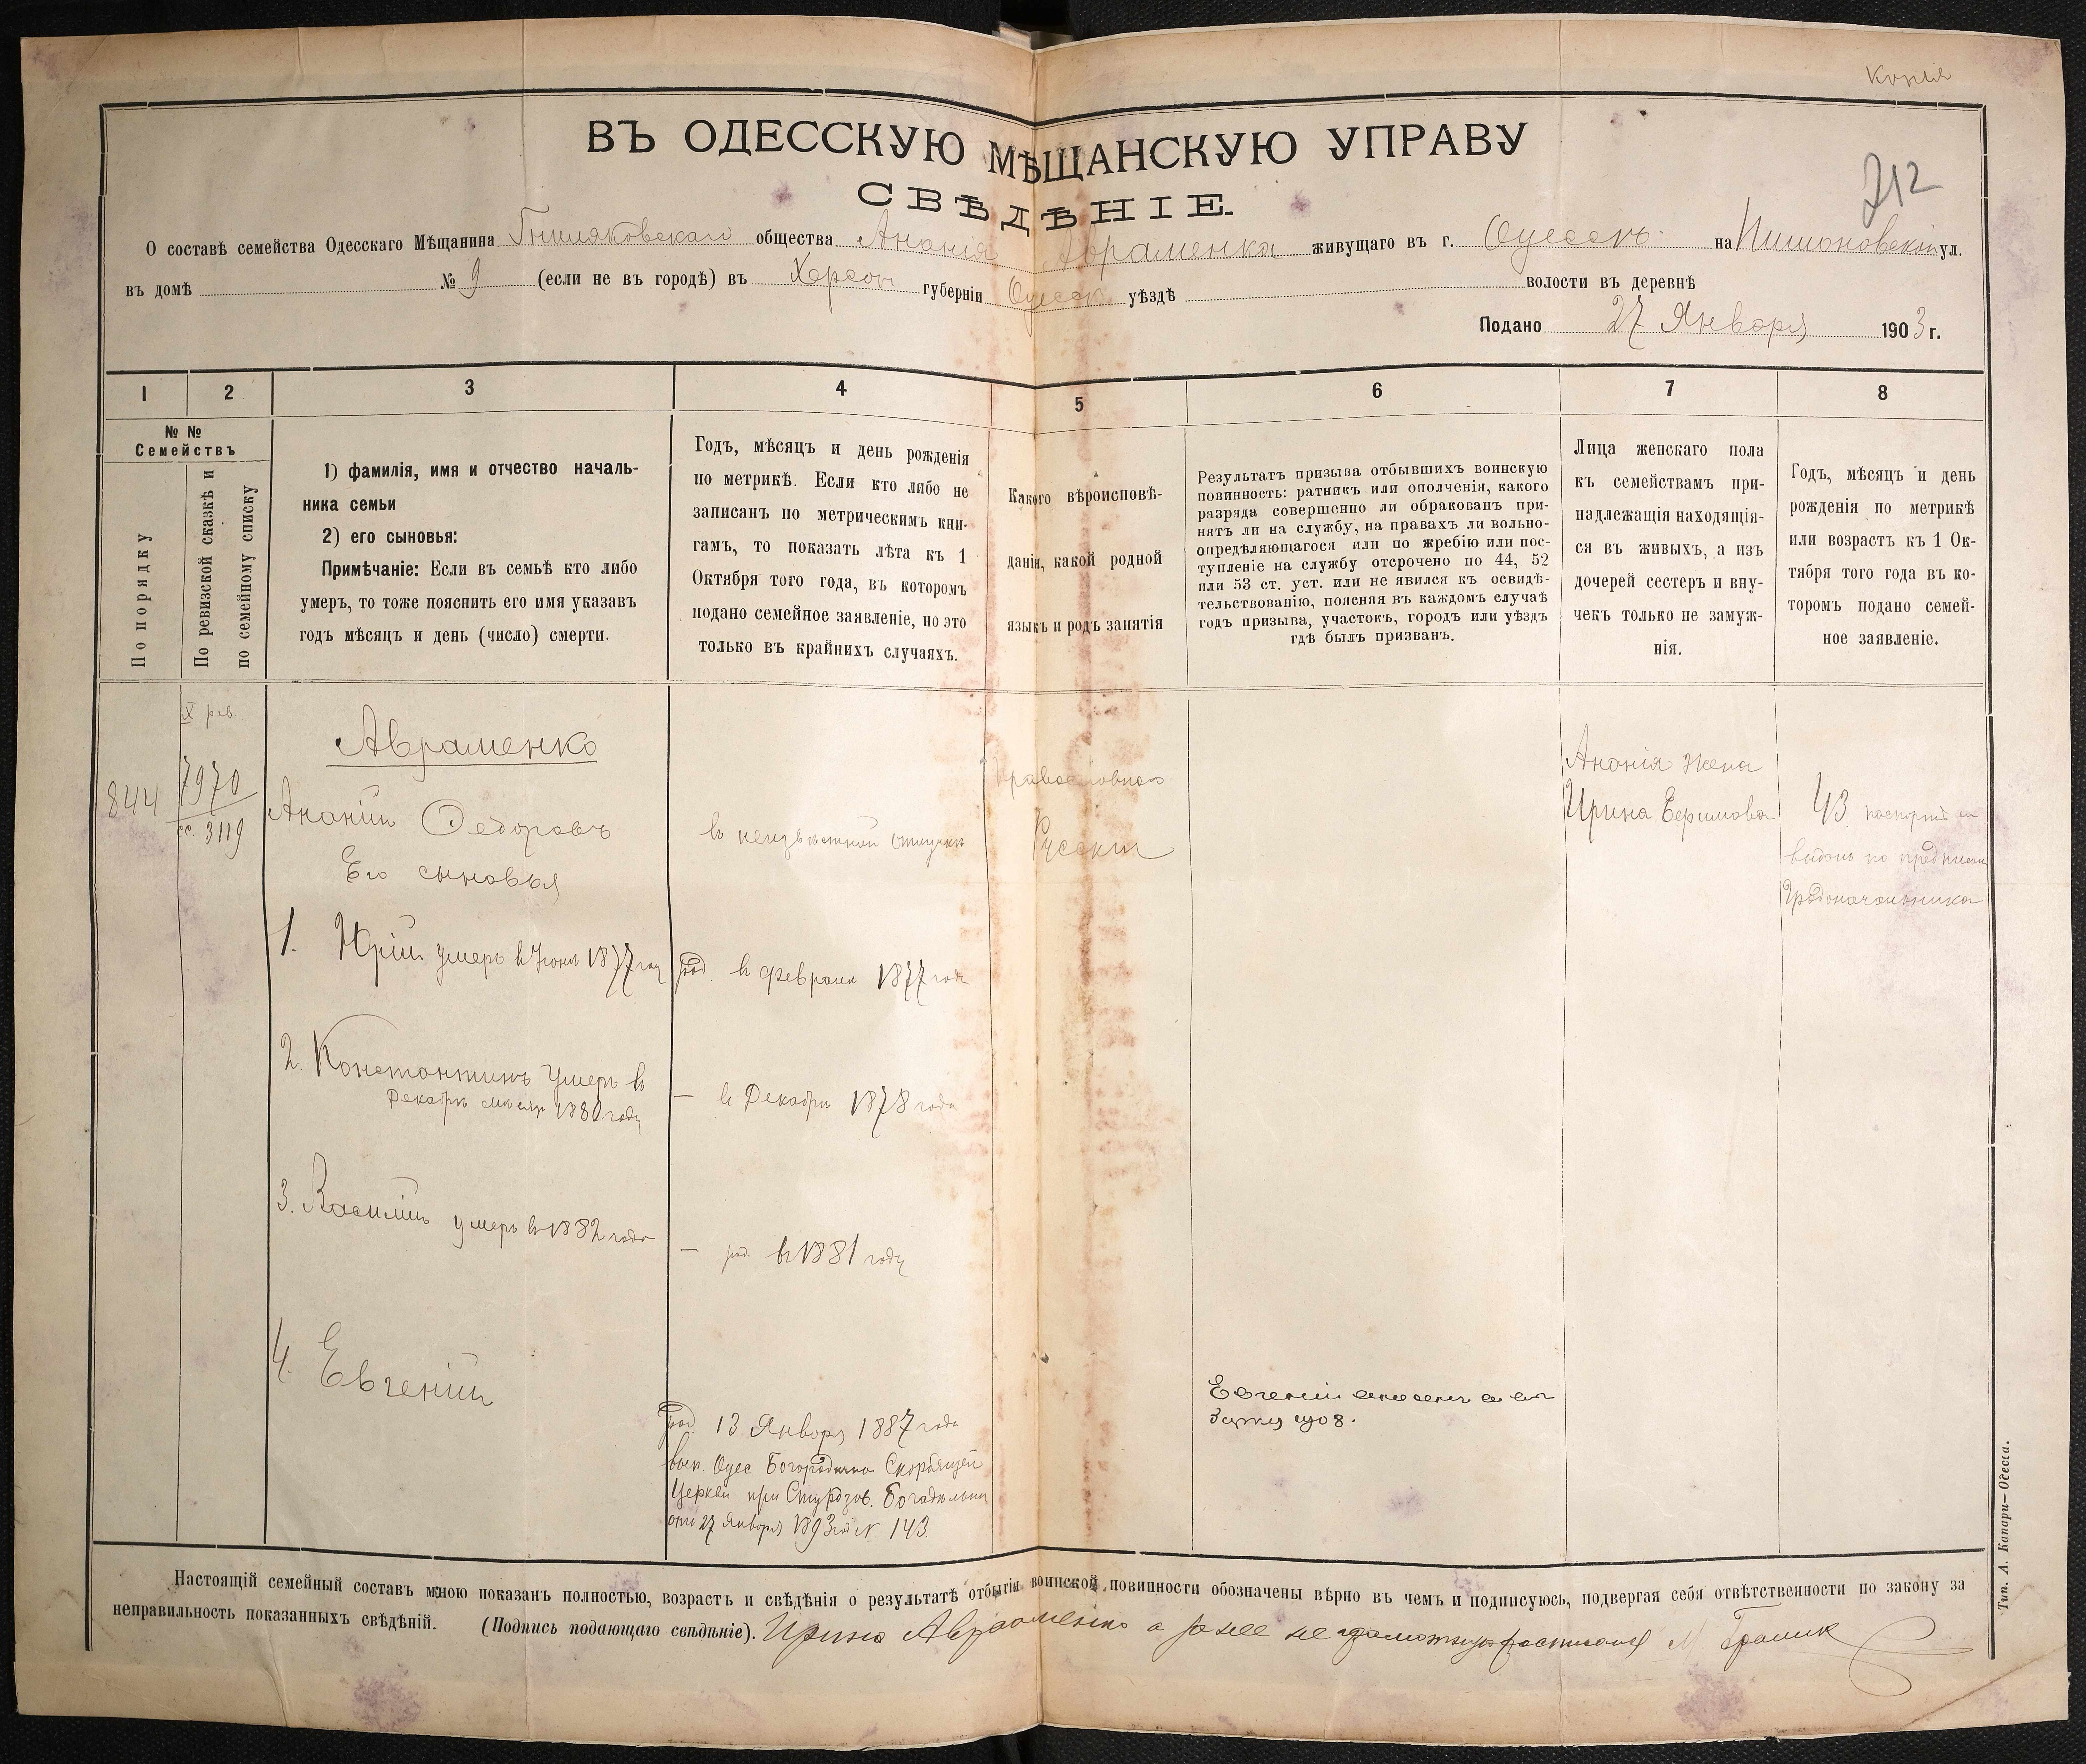 Копія
ВЪ ОДЕССКУЮ МѢЩАНСКУЮ УПРАВУ
212
СВѢДѢНІЕ.
О составѣ семейства Одесскаго Мѣщанина Гниляковскаго общества Ананія Авраменка живущаго въ г. Одессѣ на Пишоновской ул.
въ домѣ № 9 (если не въ городѣ) въ Херсон губерніи Одесск. уѣздѣ волости въ деревнѣ
Подано 27 Января 1903 г.
1 2 3 4 5 6 7 8
№ №
Семействъ
По порядку
По ревизской сказкѣ и
по семейному списку
1) фамилія, имя и отчество началь-
ника семьи
2) его сыновья:
Примѣчаніе: Если въ семьѣ кто либо
умеръ, то тоже пояснить его имя указавъ
годъ мѣсяцъ и день (число) смерти.
Годъ, мѣсяцъ и день рожденія
по метрикѣ. Если кто либо не
записанъ по метрическимъ кни-
гамъ, то показать лѣта къ 1
Октября того года, въ которомъ
подано семейное заявленіе, но это
только въ крайнихъ случаяхъ.
Какого вѣроисповѣ-
данія, какой родной
языкъ и родъ занятія
Результатъ призыва отбывшихъ воинскую
повинность: ратникъ или ополченія, какого
разряда совершенно ли обракованъ при-
нятъ ли на службу, на правахъ ли вольно-
опредѣляющагося или по жребію или пос-
тупленіе на службу отсрочено по 44, 52
или 53 ст. уст. или не явился къ освидѣ-
тельствованію, поясняя въ каждомъ случаѣ
годъ призыва, участокъ, городъ или уѣздъ
гдѣ былъ призванъ.
Лица женскаго пола
къ семействамъ при-
надлежащія находящія-
ся въ живыхъ, а изъ
дочерей сестеръ и вну-
чекъ только не замуж-
нія.
Годъ, мѣсяцъ и день
рожденія по метрикѣ
или возрастъ къ 1 Ок-
тября того года въ ко-
торомъ подано семей-
ное заявленіе.
X рев.
844
7970
сс. 3119
Авраменко
Ананій Федоровъ
Его сыновья
въ неизвѣстной отлучкѣ
Православнаго
Русскій
Ананія жена
Ирина Ефимова
43 паспортъ ей
выданъ по предписан
Градоначальника
1. Юрій умеръ въ Іюнѣ 1877 году
род. въ февралѣ 1877 года
2. Константинъ умеръ въ
Декабрѣ мѣсяцѣ 1880 году
— въ Декабрѣ 1878 года
3. Василій умеръ въ 1882 года
— род. въ 1881 году
4. Евгеній
род. 13 Января 1887 года
вып. Одес Богородично Скорбящей
Церкви при Стурдзов. Богадѣльни
отъ 27 Января 1893 года № 143
Евгеній
1908.
Настоящій семейный составъ мною показанъ полностью, возрастъ и свѣдѣнія о результатѣ отбытія воинской повинности обозначены вѣрно въ чемъ и подписуюсь, подвергая себя отвѣтственности по закону за
неправильность показанныхъ свѣдѣній. (Подпись подающаго свѣдѣніе). Ирина Авраменко а за нее не грамотную росписался М. Граник
Тип. А. Капари—Одесса.